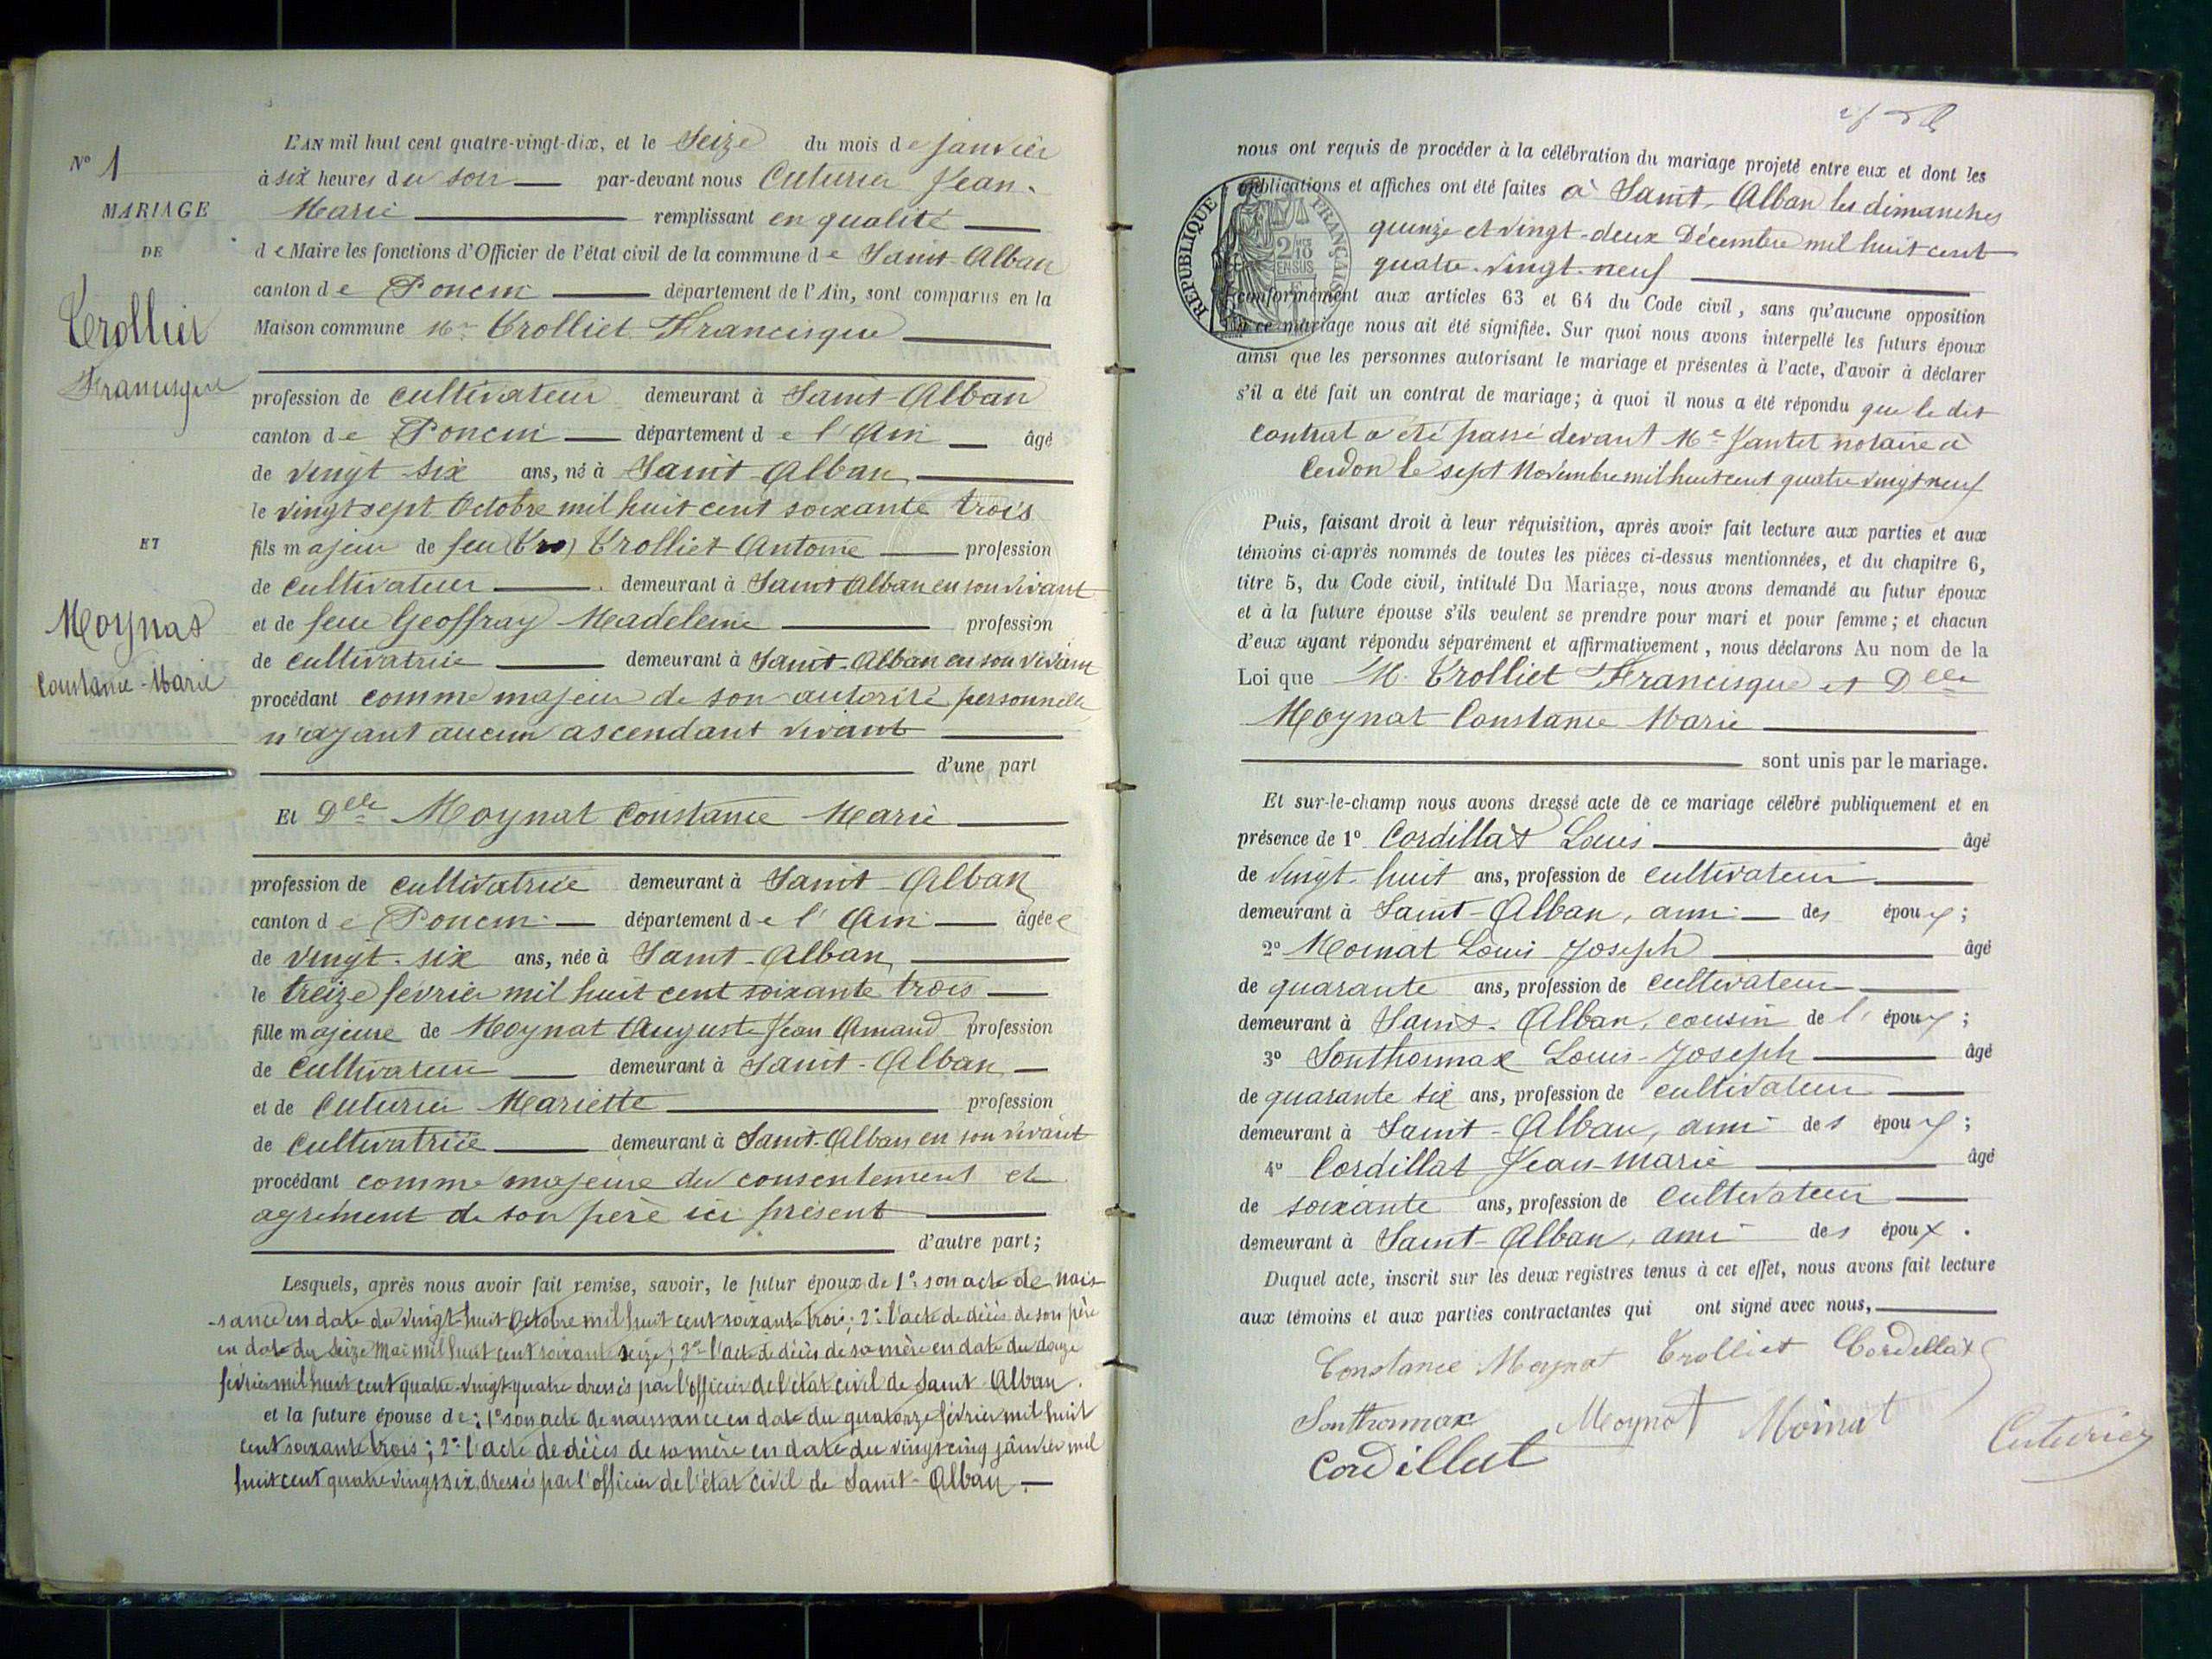 N° 1
MARIAGE
DE
Trolliet
Francisque
ET
Moynat
Constance-Marie
L'AN mil huit cent quatre-vingt-dix, et le Seize du mois de janvier
à six heures du soir par-devant nous Cuturier Jean-
Marie remplissant en qualité
de Maire les fonctions d'Officier de l'état civil de la commune de Saint-Alban
canton de Poncin département de l'Ain, sont comparus en la
Maison commune Mr Trolliet Francisque
profession de cultivateur demeurant à Saint-Alban
canton de Poncin département de l'Ain âgé
de vingt-six ans, né à Saint-Alban
le vingt sept Octobre mil huit cent soixante trois
fils majeur de feu (Tro) Trolliet Antoine profession
de cultivateur demeurant à Saint Alban en son vivant
et de feue Geoffray Madeleine profession
de cultivatrice demeurant à Saint-Alban en son vivant
procédant comme majeur de son autorité personnelle
n'ayant aucun ascendant vivant
d'une part
Et Delle Moynat Constance Marie
profession de cultivatrice demeurant à Saint-Alban
canton de Poncin département de l'Ain âgée
de vingt-six ans, née à Saint-Alban
le treize fevrier mil huit cent soixante trois
fille majeure de Moynat Auguste Jean Amand profession
de cultivateur demeurant à Saint-Alban
et de Cuturier Mariette profession
de cultivatrice demeurant à Saint-Alban en son vivant
procédant comme majeure du consentement et
agrément de son père ici présent
d'autre part;
Lesquels, après nous avoir fait remise, savoir, le futur époux de 1° son acte de nais-
-sance en date du vingt-huit Octobre mil huit cent soixante trois; 2° l'acte de décès de son père
en date du seize Mai mil huit cent soixante seize; 3° l'acte de décès de sa mère en date du douze
février mil huit cent quatre-vingt quatre dressés par l'officier de l'état civil de Saint-Alban.
et la future épouse de: 1° son acte de naissance en date du quatorze février mil huit
cent soixante trois; 2° l'acte de décès de sa mère en date du vingt cinq janvier mil
huit cent quatre vingt six, dressés par l'officier de l'état civil de Saint-Alban.
nous ont requis de procéder à la célébration du mariage projeté entre eux et dont les
publications et affiches ont été faites à Saint-Alban les dimanches
quinze et vingt-deux Décembre mil huit cent
quatre-vingt-neuf
conformément aux articles 63 et 64 du Code civil, sans qu'aucune opposition
à ce mariage nous ait été signifiée. Sur quoi nous avons interpellé les futurs époux
ainsi que les personnes autorisant le mariage et présentes à l'acte, d'avoir à déclarer
s'il a été fait un contrat de mariage; à quoi il nous a été répondu que le dit
contrat a été passé devant Me Jantet notaire à
Cerdon le sept Novembre mil huit cent quatre vingt neuf
RÉPUBLIQUE FRANÇAISE
Puis, faisant droit à leur réquisition, après avoir fait lecture aux parties et aux
témoins ci-après nommés de toutes les pièces ci-dessus mentionnées, et du chapitre 6,
titre 5, du Code civil, intitulé Du Mariage, nous avons demandé au futur époux
et à la future épouse s'ils veulent se prendre pour mari et pour femme; et chacun
d'eux ayant répondu séparément et affirmativement, nous déclarons Au nom de la
Loi que M. Trolliet Francisque et Delle
Moynat Constance Marie
sont unis par le mariage.
Et sur-le-champ nous avons dressé acte de ce mariage célébré publiquement et en
présence de 1° Cordillat Louis âgé
de vingt-huit ans, profession de cultivateur
demeurant à Saint-Alban, ami des époux;
2° Moinat Louis Joseph âgé
de quarante ans, profession de cultivateur
demeurant à Saint-Alban, cousin de l'époux;
3° Sonthonnax Louis-Joseph âgé
de quarante six ans, profession de cultivateur
demeurant à Saint-Alban, ami des époux;
4° Cordillat Jean-Marie âgé
de soixante ans, profession de cultivateur
demeurant à Saint-Alban, ami des époux.
Duquel acte, inscrit sur les deux registres tenus à cet effet, nous avons fait lecture
aux témoins et aux parties contractantes qui ont signé avec nous,
Constance Moynat Trolliet Cordillat
Sonthonnax Moynat Moinat
Cordillat Cuturier